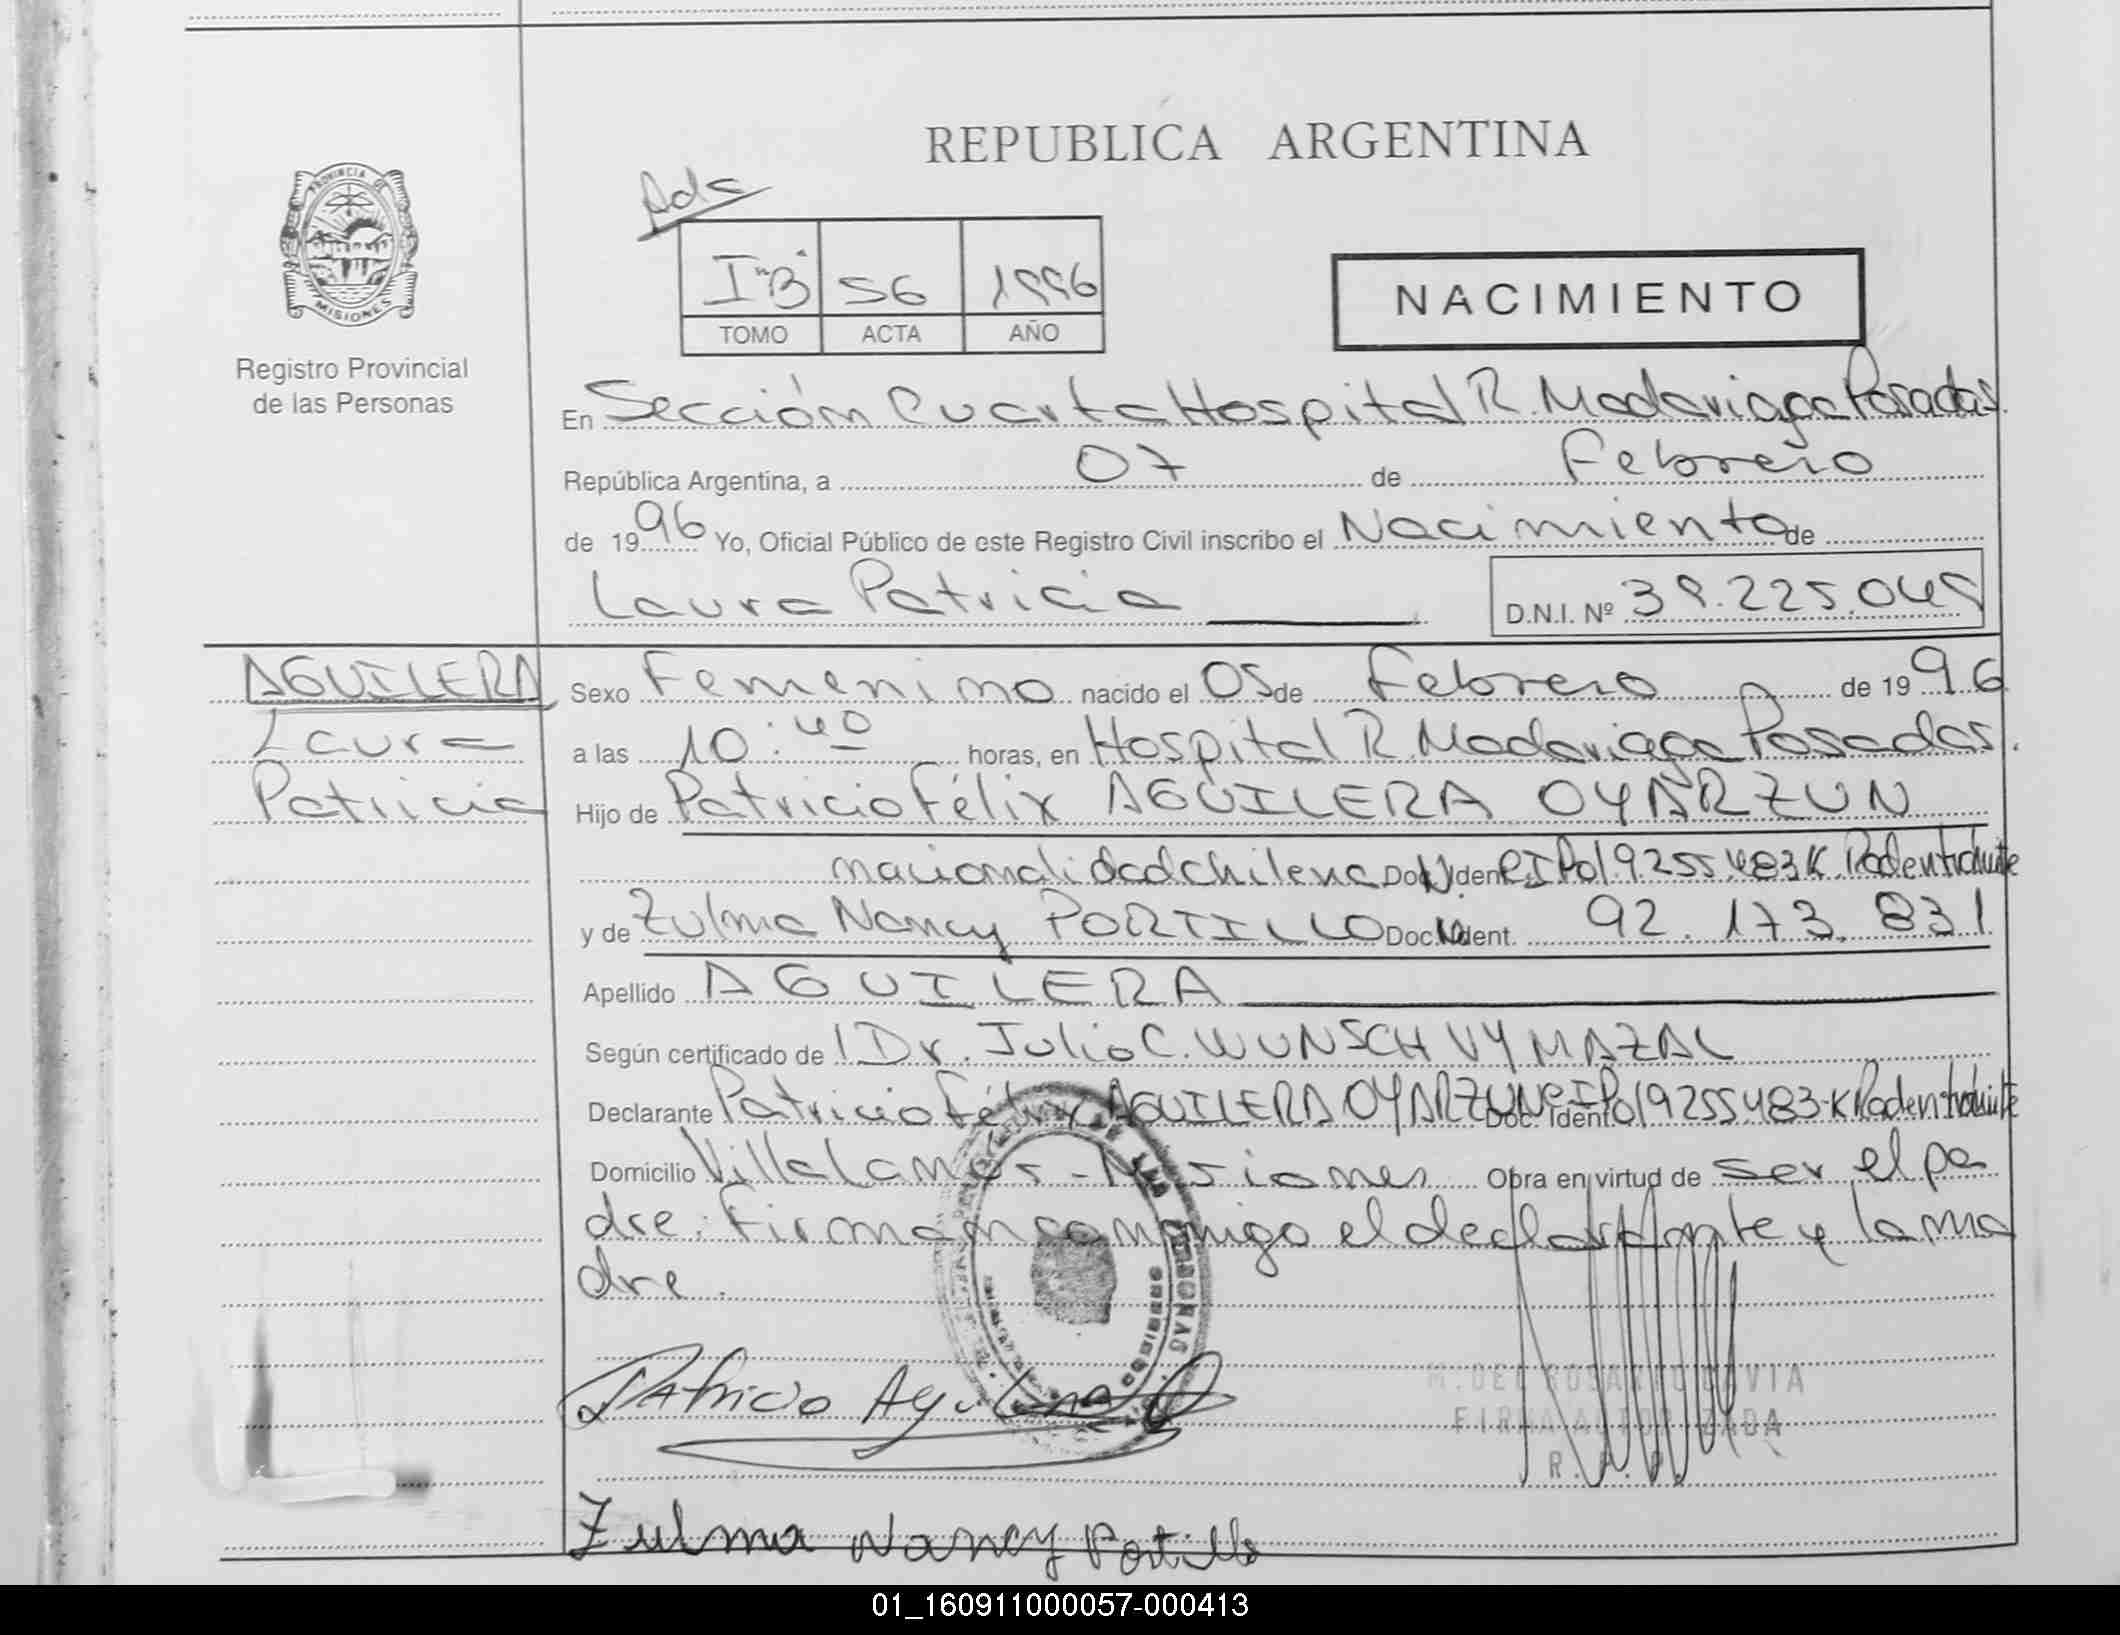 REPUBLICA ARGENTINA
Ads
PROVINCIA DE
MISIONES
I "B" 56 1996
TOMO ACTA AÑO
NACIMIENTO
Registro Provincial
de las Personas
En Sección Cuarta Hospital R. Madariaga Posadas.
República Argentina, a 07 de Febrero
de 1996 Yo, Oficial Público de este Registro Civil inscribo el Nacimiento de
Laura Patricia D.N.I. Nº 39.225.045
AGUILERA
Laura
Patricia
Sexo Femenino nacido el 05 de Febrero de 1996
a las 10:40 horas, en Hospital R. Madariaga Posadas.
Hijo de Patricio Félix AGUILERA OYARZUN
nacionalidad chilena Doc. Ident.
y de Zulma Nancy PORTILLO Doc. Ident. 92.173.831
Apellido AGUILERA
Según certificado de 1 Dr. Julio C. WUNSCH VYMAZAL
Declarante Patricio Félix AGUILERA OYARZUN Doc. Ident.
Domicilio Villa Lanús - Misiones Obra en virtud de ser el pa
dre: Firman conmigo el declarante y la ma
dre.
Patricio Aguilera
M. DEL ROSARIO
FIRMA AUTORIZADA
R. P. P.
Zulma Nancy Portillo
01_160911000057-000413